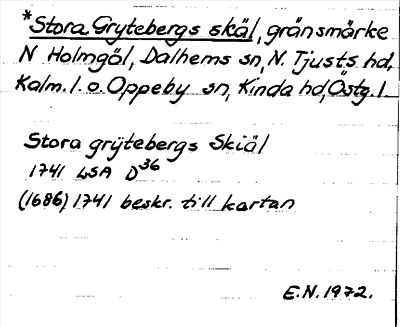 *Stora Grytebergs skäl, gränsmärke
N Holmgöl, Dalhems sn, N. Tjusts hd,
Kalm. l. o. Oppeby sn, Kinda hd, Östg. l.
Stora grÿtebergs Skiäl
1741 LSA D36
(1686) 1741 beskr. till kartan
E.N. 1972.